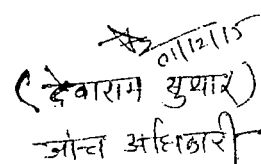 01/12/15
(देवाराम सुथार)
जांच अधिकारी